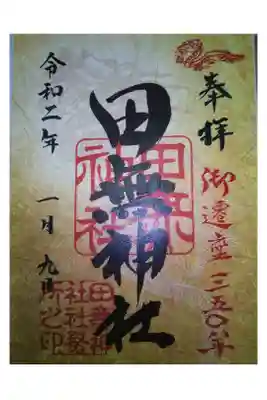 奉拝
御遷座三五〇年
田無神社
田無神社
田無神社社務所之印
令和二年
一月九日